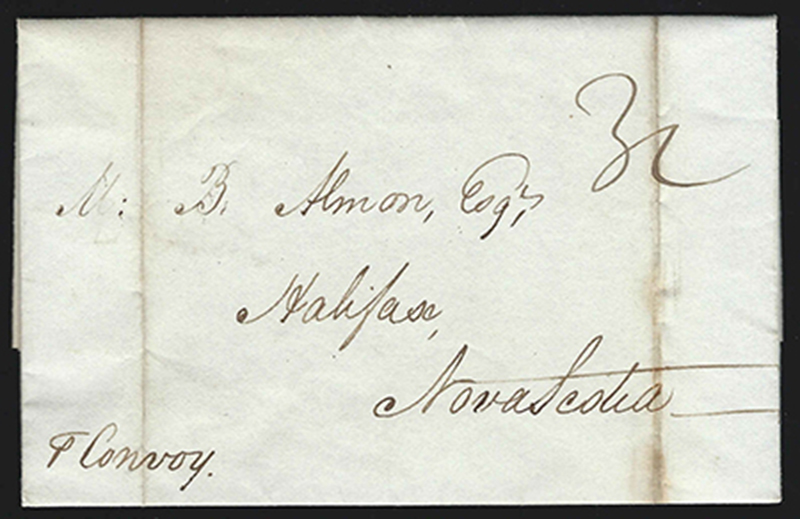 M: B. Almon, Esqr,
Halifax,
Nova Scotia
⅌ Convoy.